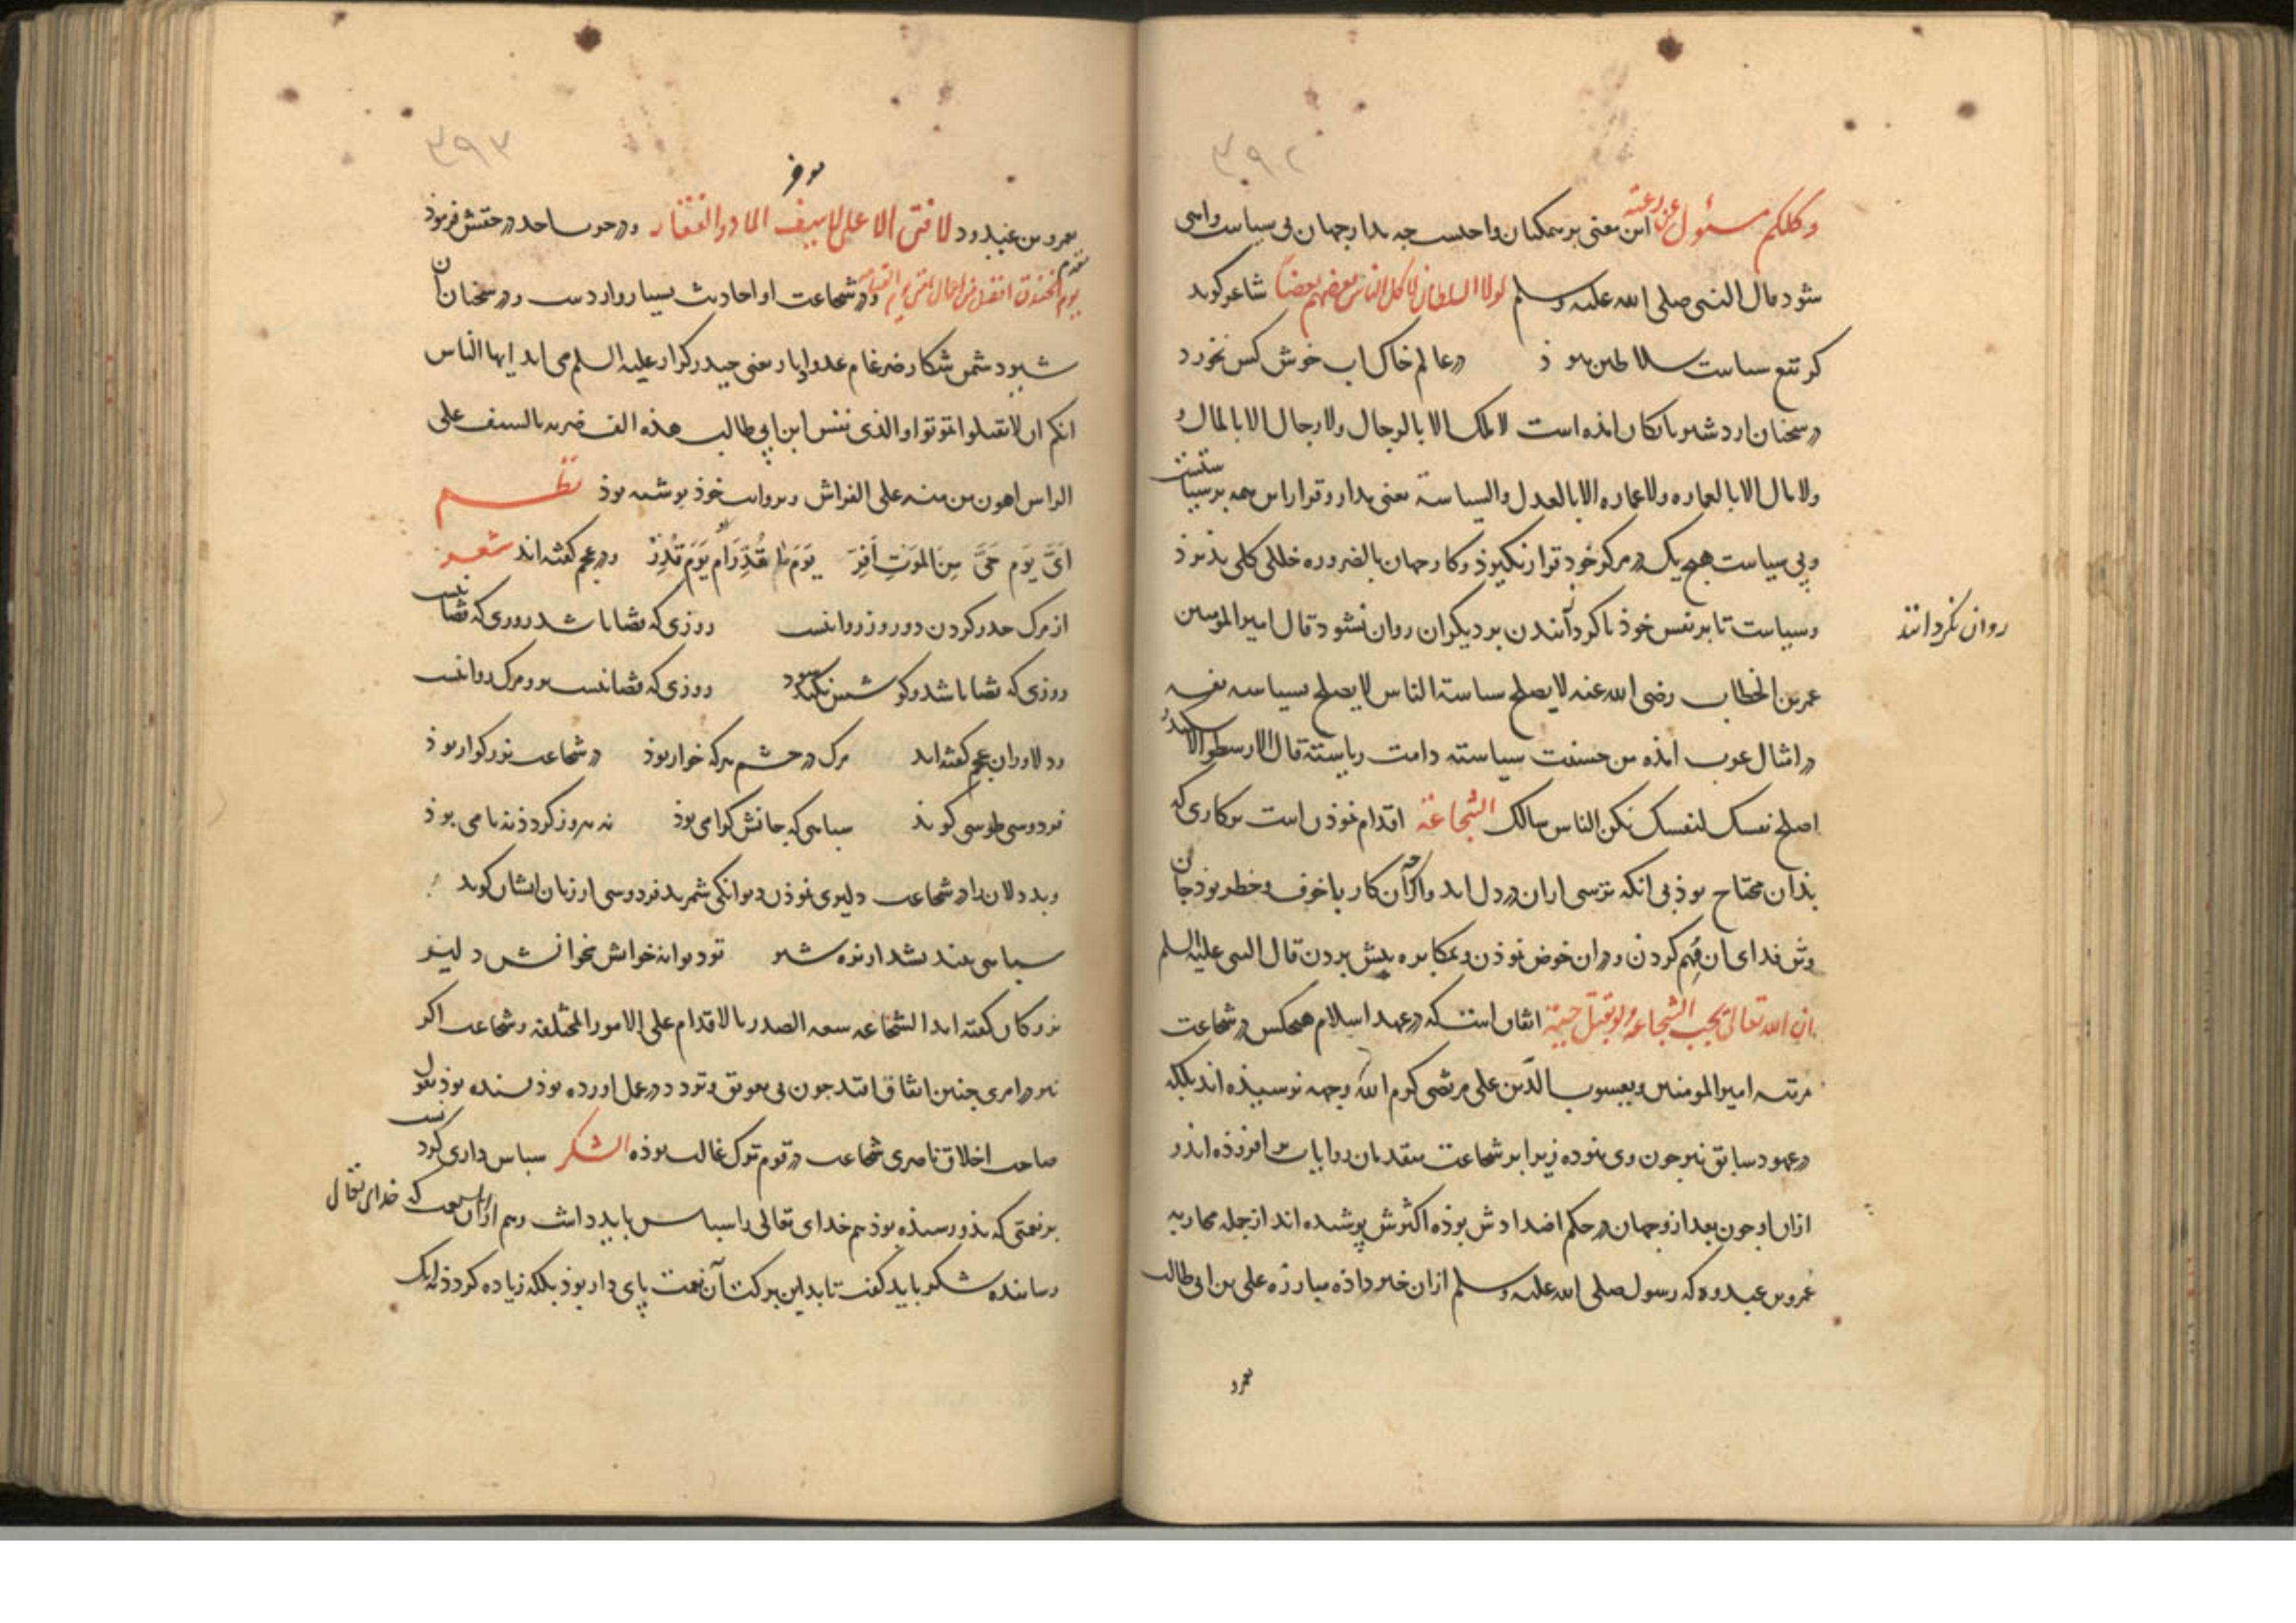 ۳۹۲
وکلکم مسئول عن رعیته این معنی بر همکنان واجبست چه مدار جهان بی سیاست واهی
شود قال النبی صلی الله علیه وسلم لولا السلطان لاکل الناس بعضهم بعضاً شاعر کوید
کر تیغ سیاست سلاطین نبود در عالم خاک اب خوش کس نخورد
در سخنان اردشیر بابکان امده است لا ملک الا بالرجال ولا رجال الا بالمال و
ولا مال الا بالعماره ولا عماره الا بالعدل والسیاسة یعنی مدار و قرار این همه بر سیاستست
وبی سیاست هیچ یک در مرکز خود قرار نکیرذ وکار جهان بالضروره خللی کلی پذیرذ
وسیاست تا بر نفس خوذ نا کردآنندن بر دیکران روان نشود قال امیر المومنین
روان نکردانند
عمر بن الخطاب رضی الله عنه لا یصلح سیاسة الناس لا یصلح سیاسه نفسه
در امثال عرب امده من حسنت سیاسته دامت ریاسته قال الارسطو الاسکندر
اصلح نفسک لنفسک تکن الناس سالک الشجاعة اقدام نموذن است بر کاری که
بذان محتاج بوذ بی انکه ترسی ازان در دل اید واکرچه آن کار با خوف و خطر بوذ جان
وتن فدای ان مُهم کردن و دران خوض نموذن و بمکابره پیش بردن قال النبی علیه السلم
ان الله تعالی یحب الشجاعه ولو بقتل حیة اتفاق است که در عهد اسلام هیچکس در شجاعت
مرتبه امیر المومنین ویعسوب الدّین علی مرتضی کرم الله وجهه نرسیذه اند بلکه
در عهود سابق نیز چون وی نبوده زیرا بر شجاعت متقدمان روایات بر افزوذه اند و
ازان او چون بعد ازو جهان در حکم اضدادش بوذه اکثرش پوشیده اند از جمله محاربه
عمرو بن عبدود که رسول صلی الله علیه وسلم ازان خبر داذه مبارزه علی بن ابی طالب
عمرو
۳۹۳
عمرو بن عبدود لا فتی الا علی لا سیف الا ذوالفقار و در حرب احد در حقش فرموذ
یوم الخندق افضل من اعمال امتی الی یوم القیامه و در شجاعت او احادیث بسیار واردست و در سخنان
شیر دشمن شکار ضرغام عدو اوبار یعنی حیدر کرار علیه السلم می اید ایها الناس
انکم ان لا تقتلوا تموتوا والذی نفس ابن ابی طالب هذه الف ضربه بالسیف علی
الراس اهون من منه علی الفراش وبر رایت خوذ نوشته بوذ نظم
اَیَّ یَومِ حَیَّ مِنَ المَوَتِ اَفِرّ یَوَمَ مَا قُدِّرَ اَم یَوَمَ قُدِرْ و در عجم کفته اند شعر
از مرک حذر کردن دو روز روا نیست روزی که قضا باشد روزی که قضا نیست
روزی که قضا باشد کوشش نکند سود روزی که قضا نیست درو مرک روا نیست
ودلاوران عجم کفته اند مرک در چشم هرکه خوار بوذ در شجاعت بزرکوار بوذ
فردوسی طوسی کوید سپاهی که جانش کرامی بوذ نه پیروز کردذ نه نامی بوذ
وبددلان را در شجاعت دلیری نموذن دیوانکی شمرند فردوسی از زبان ایشان کوید
سپاهی نترسد از نره شیر تو دیوانه خوانش مخوانش دلیر
بزرکان کفته اند الشجاعه سعه الصدر بالاقدام علی الامور المختلفه وشجاعت اکر
نیز در امری چنین اتفاق افتد چون بی تعویق وتردد در عمل اورده بوذ پسندیده بوذ بقول
صاحب اخلاق ناصری شجاعت در قوم ترک غالب بوذه الشکر سپاس داری کردنست
بر نعمتی که بذو رسیذه بوذ هم خدای تعالی را سپاس باید داشت وهم ازان نعمت که خدای تعالی
رساننده شکر باید کفت تا بدین برکت آن نعمت پای دار بوذ بلکه زیاده کردذ